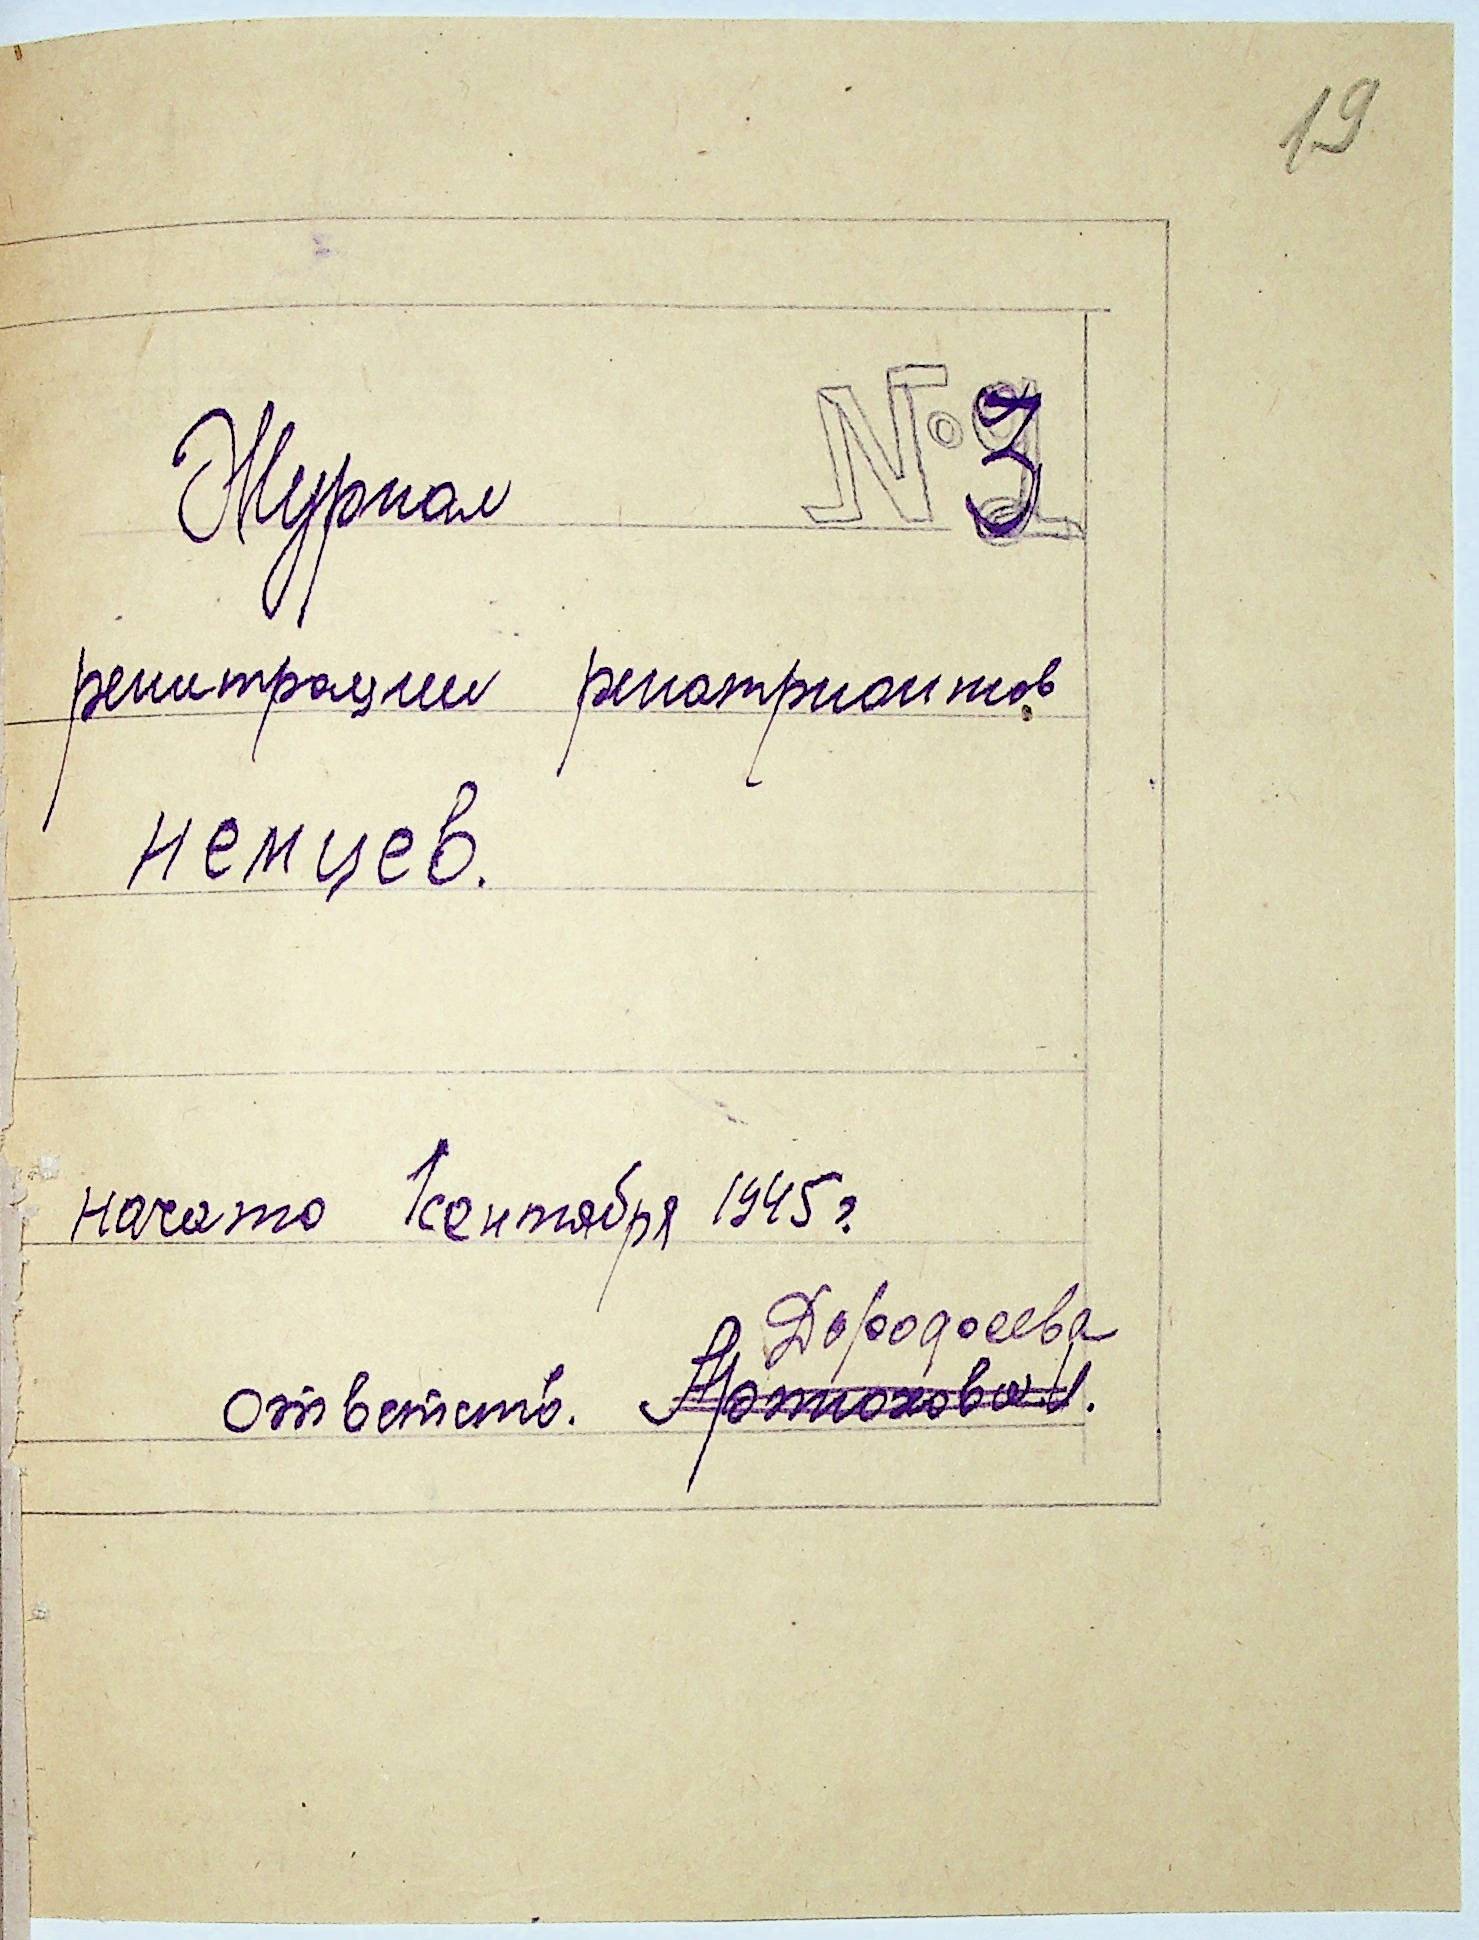 19
Журнал №3
ренитрации репатриантов
немцев.
начато 1 сентября 1945 г
Дородоева
ответств.